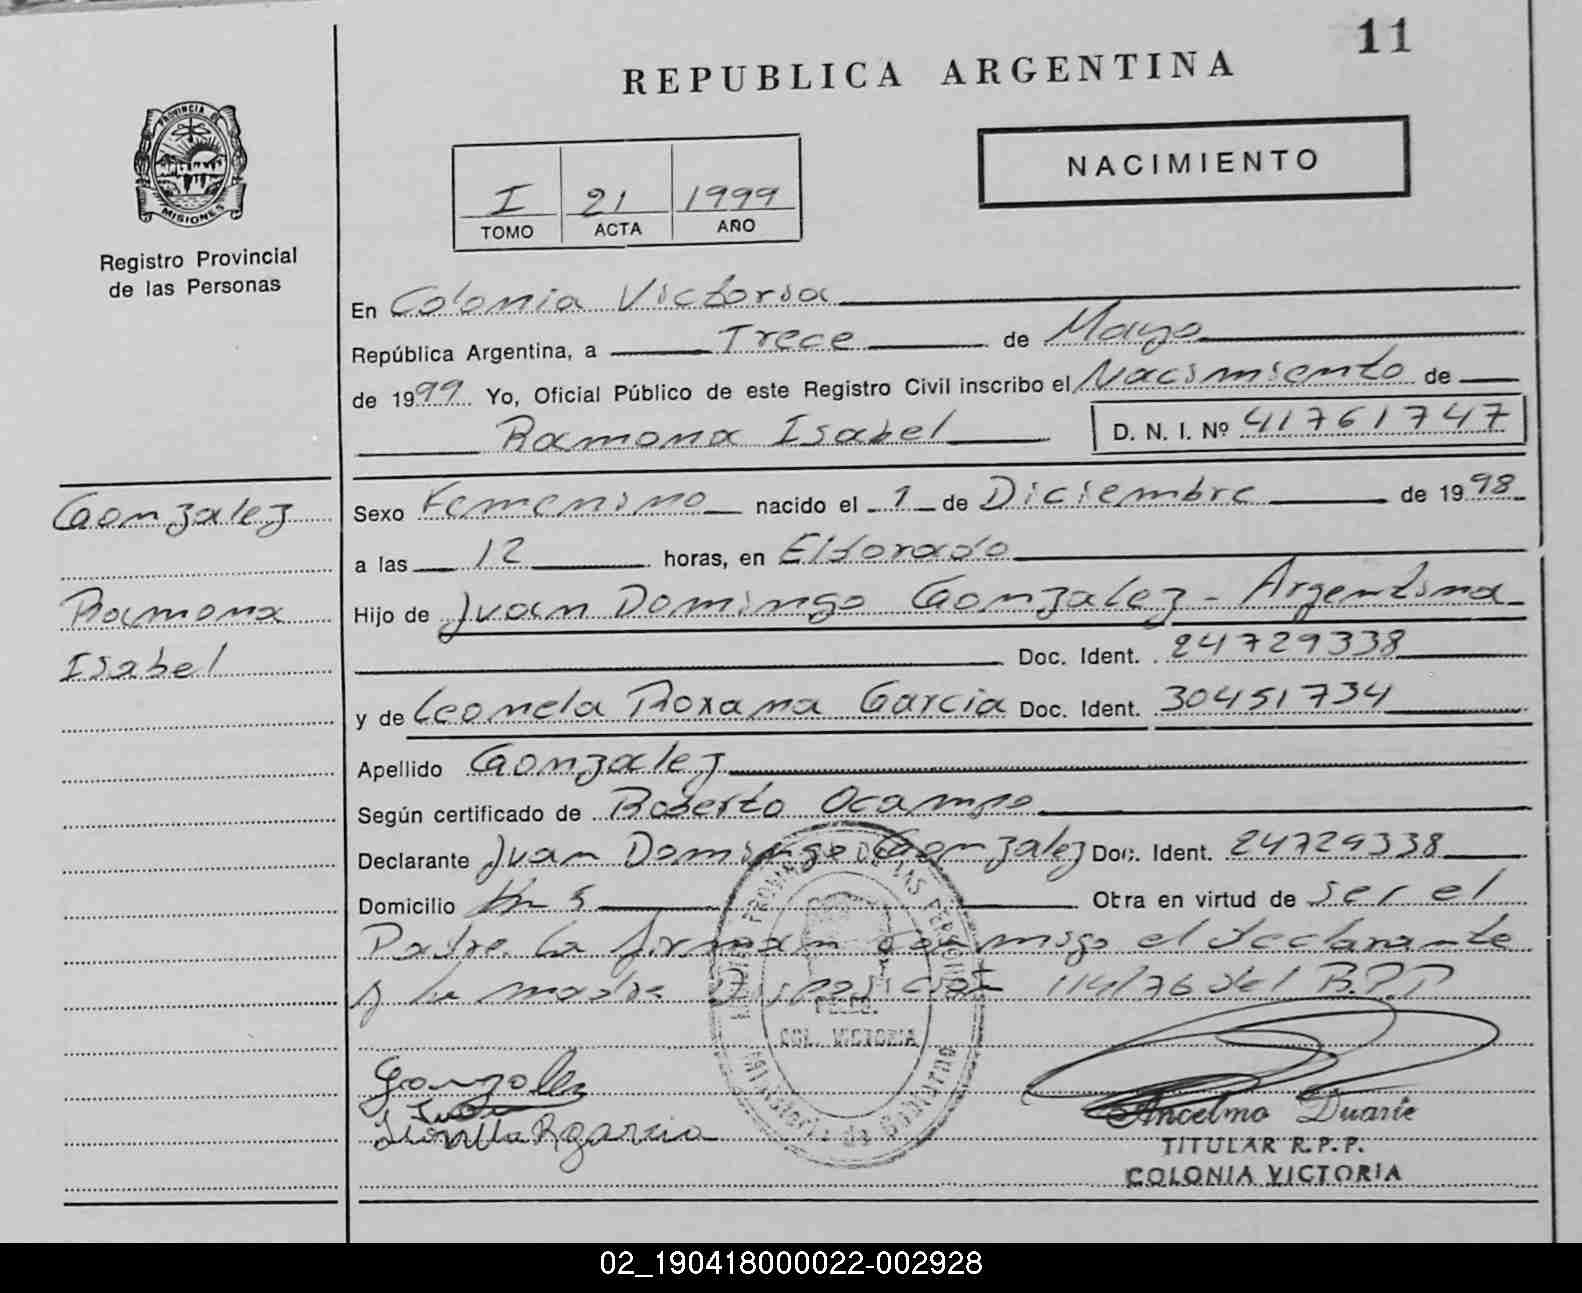 11
REPUBLICA ARGENTINA
PROVINCIA DE
MISIONES
Registro Provincial
de las Personas
NACIMIENTO
I 21 1999
TOMO ACTA AÑO
En Colonia Victoria
República Argentina, a Trece de Mayo
de 1999 Yo, Oficial Público de este Registro Civil inscribo el Nacimiento de
Ramona Isabel D. N. I. Nº 41761747
Gonzalez
Ramona
Isabel
Sexo Femenino nacido el 1 de Diciembre de 1998
a las 12 horas, en Eldorado
Hijo de Juan Domingo Gonzalez - Argentina
Doc. Ident. 24729338
y de Leonela Roxana Garcia Doc. Ident. 30451734
Apellido Gonzalez
Según certificado de Roberto Ocampo
Declarante Juan Domingo Gonzalez Doc. Ident. 24729338
Domicilio Km 5 Otra en virtud de ser el
Padre. La firman conmigo el declarante
y la madre Disposición 114/76 del R.P.P
COL. VICTORIA
Ministerio de Gobierno
Gonzalez
Juan
Leonela R garcia
Ancelmo Duarte
TITULAR R.P.P.
COLONIA VICTORIA
02_190418000022-002928